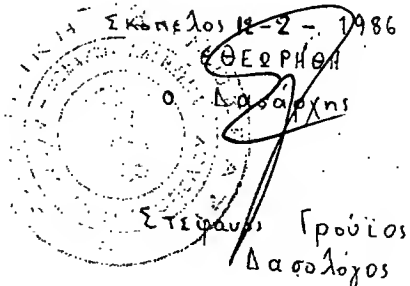 Σκόπελος 12-2-1986
ΕΘΕΩΡΗΘΗ
Ο Δασάρχης
Στέφανος Γρούϊος
Δασολόγος